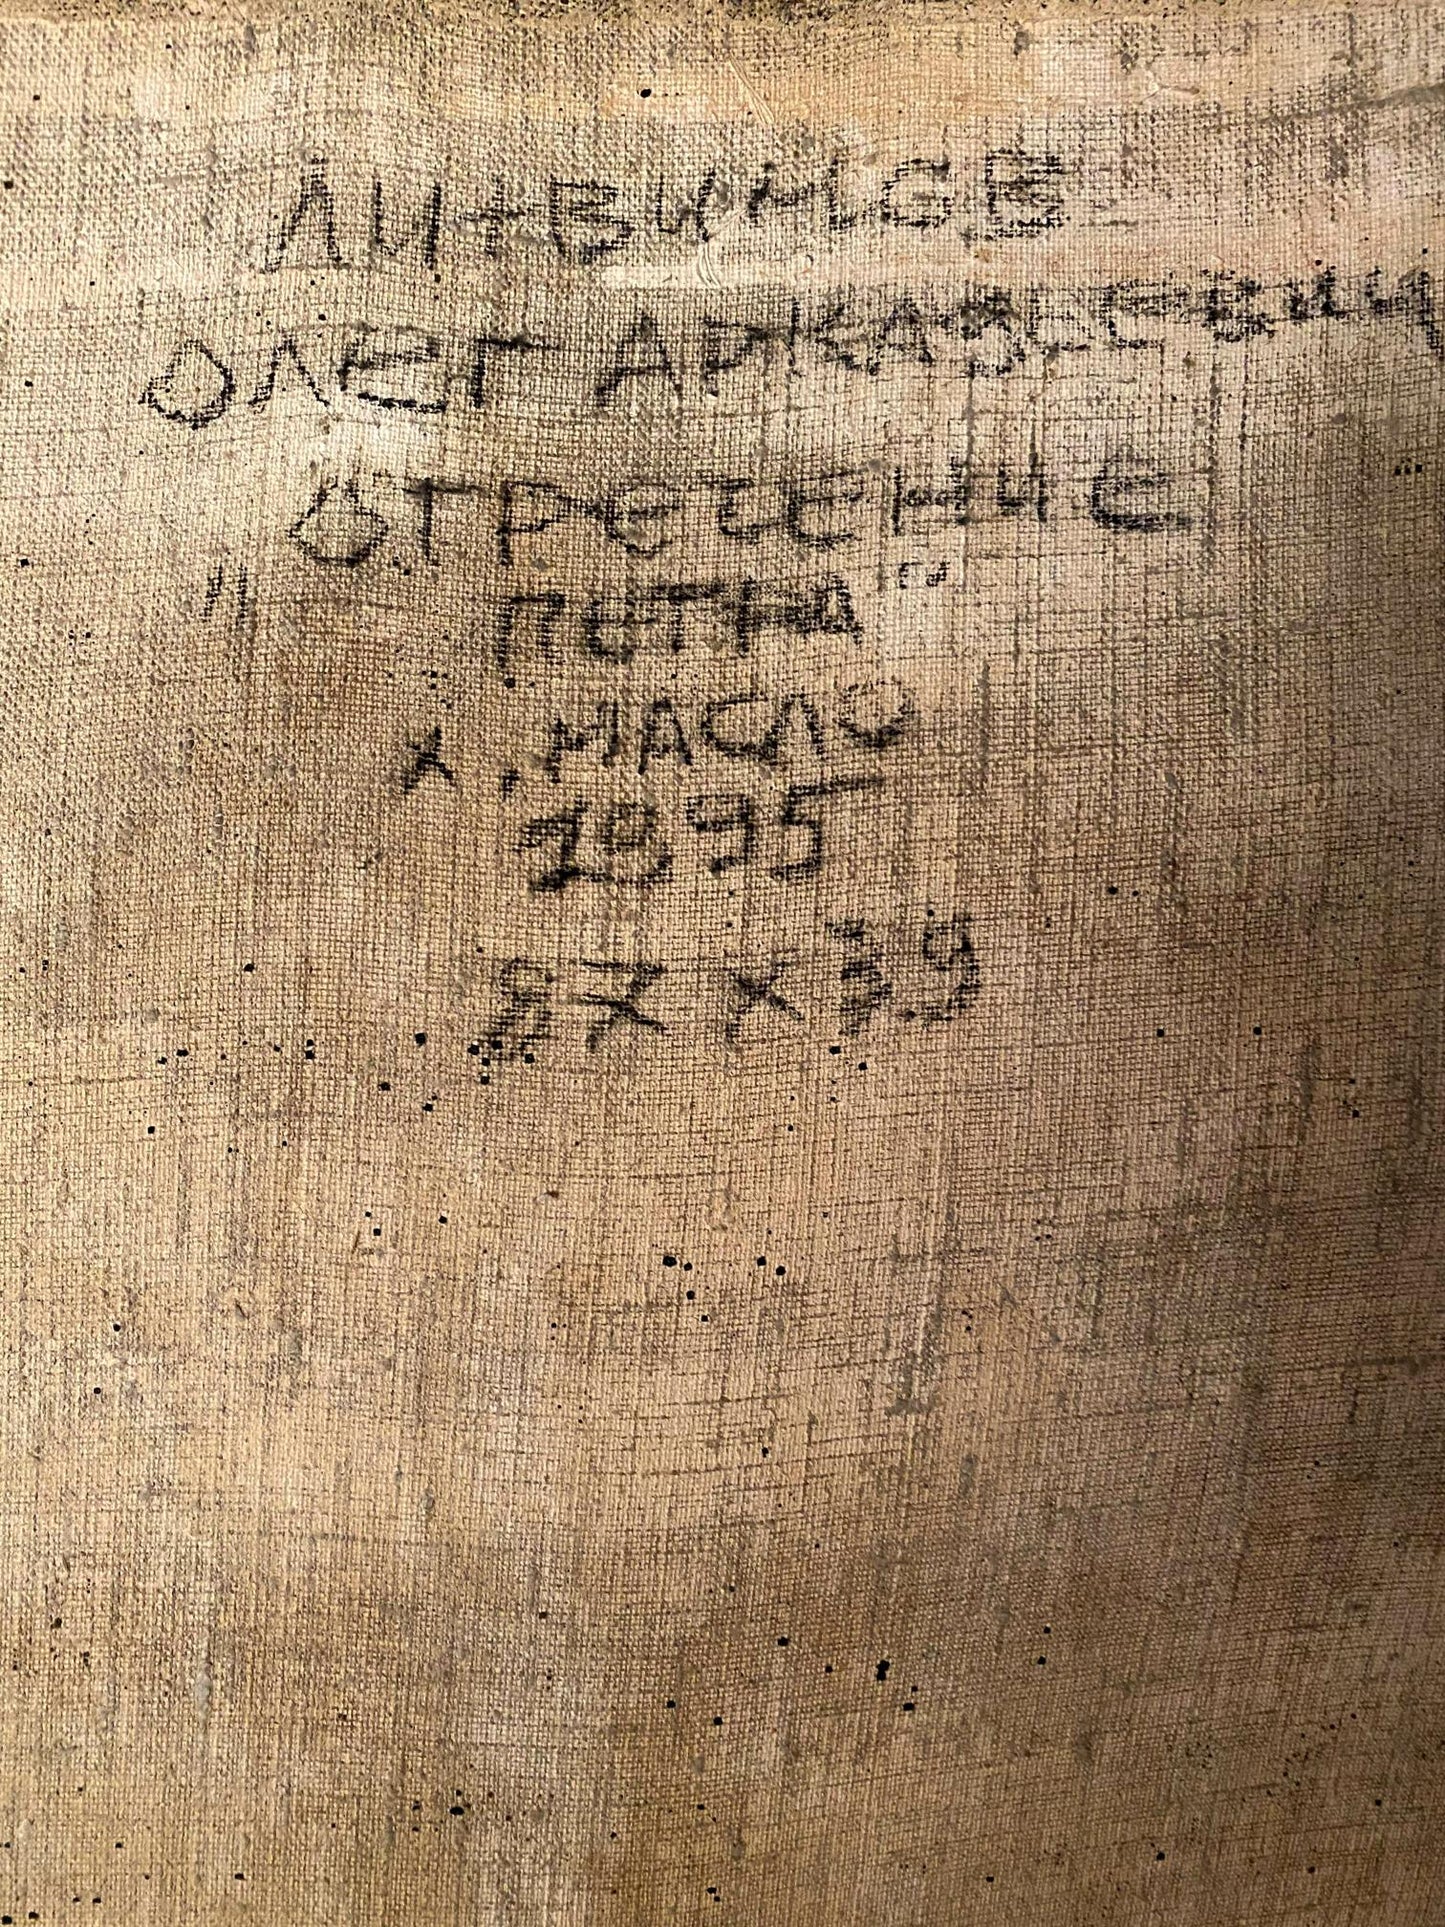 ЛИТВИНОВ
ОЛЕГ АРКАДЬЕВИЧ
ОТРЕЧЕНИЕ
"ПЕТРА"
Х., МАСЛО
1995
87 х 39